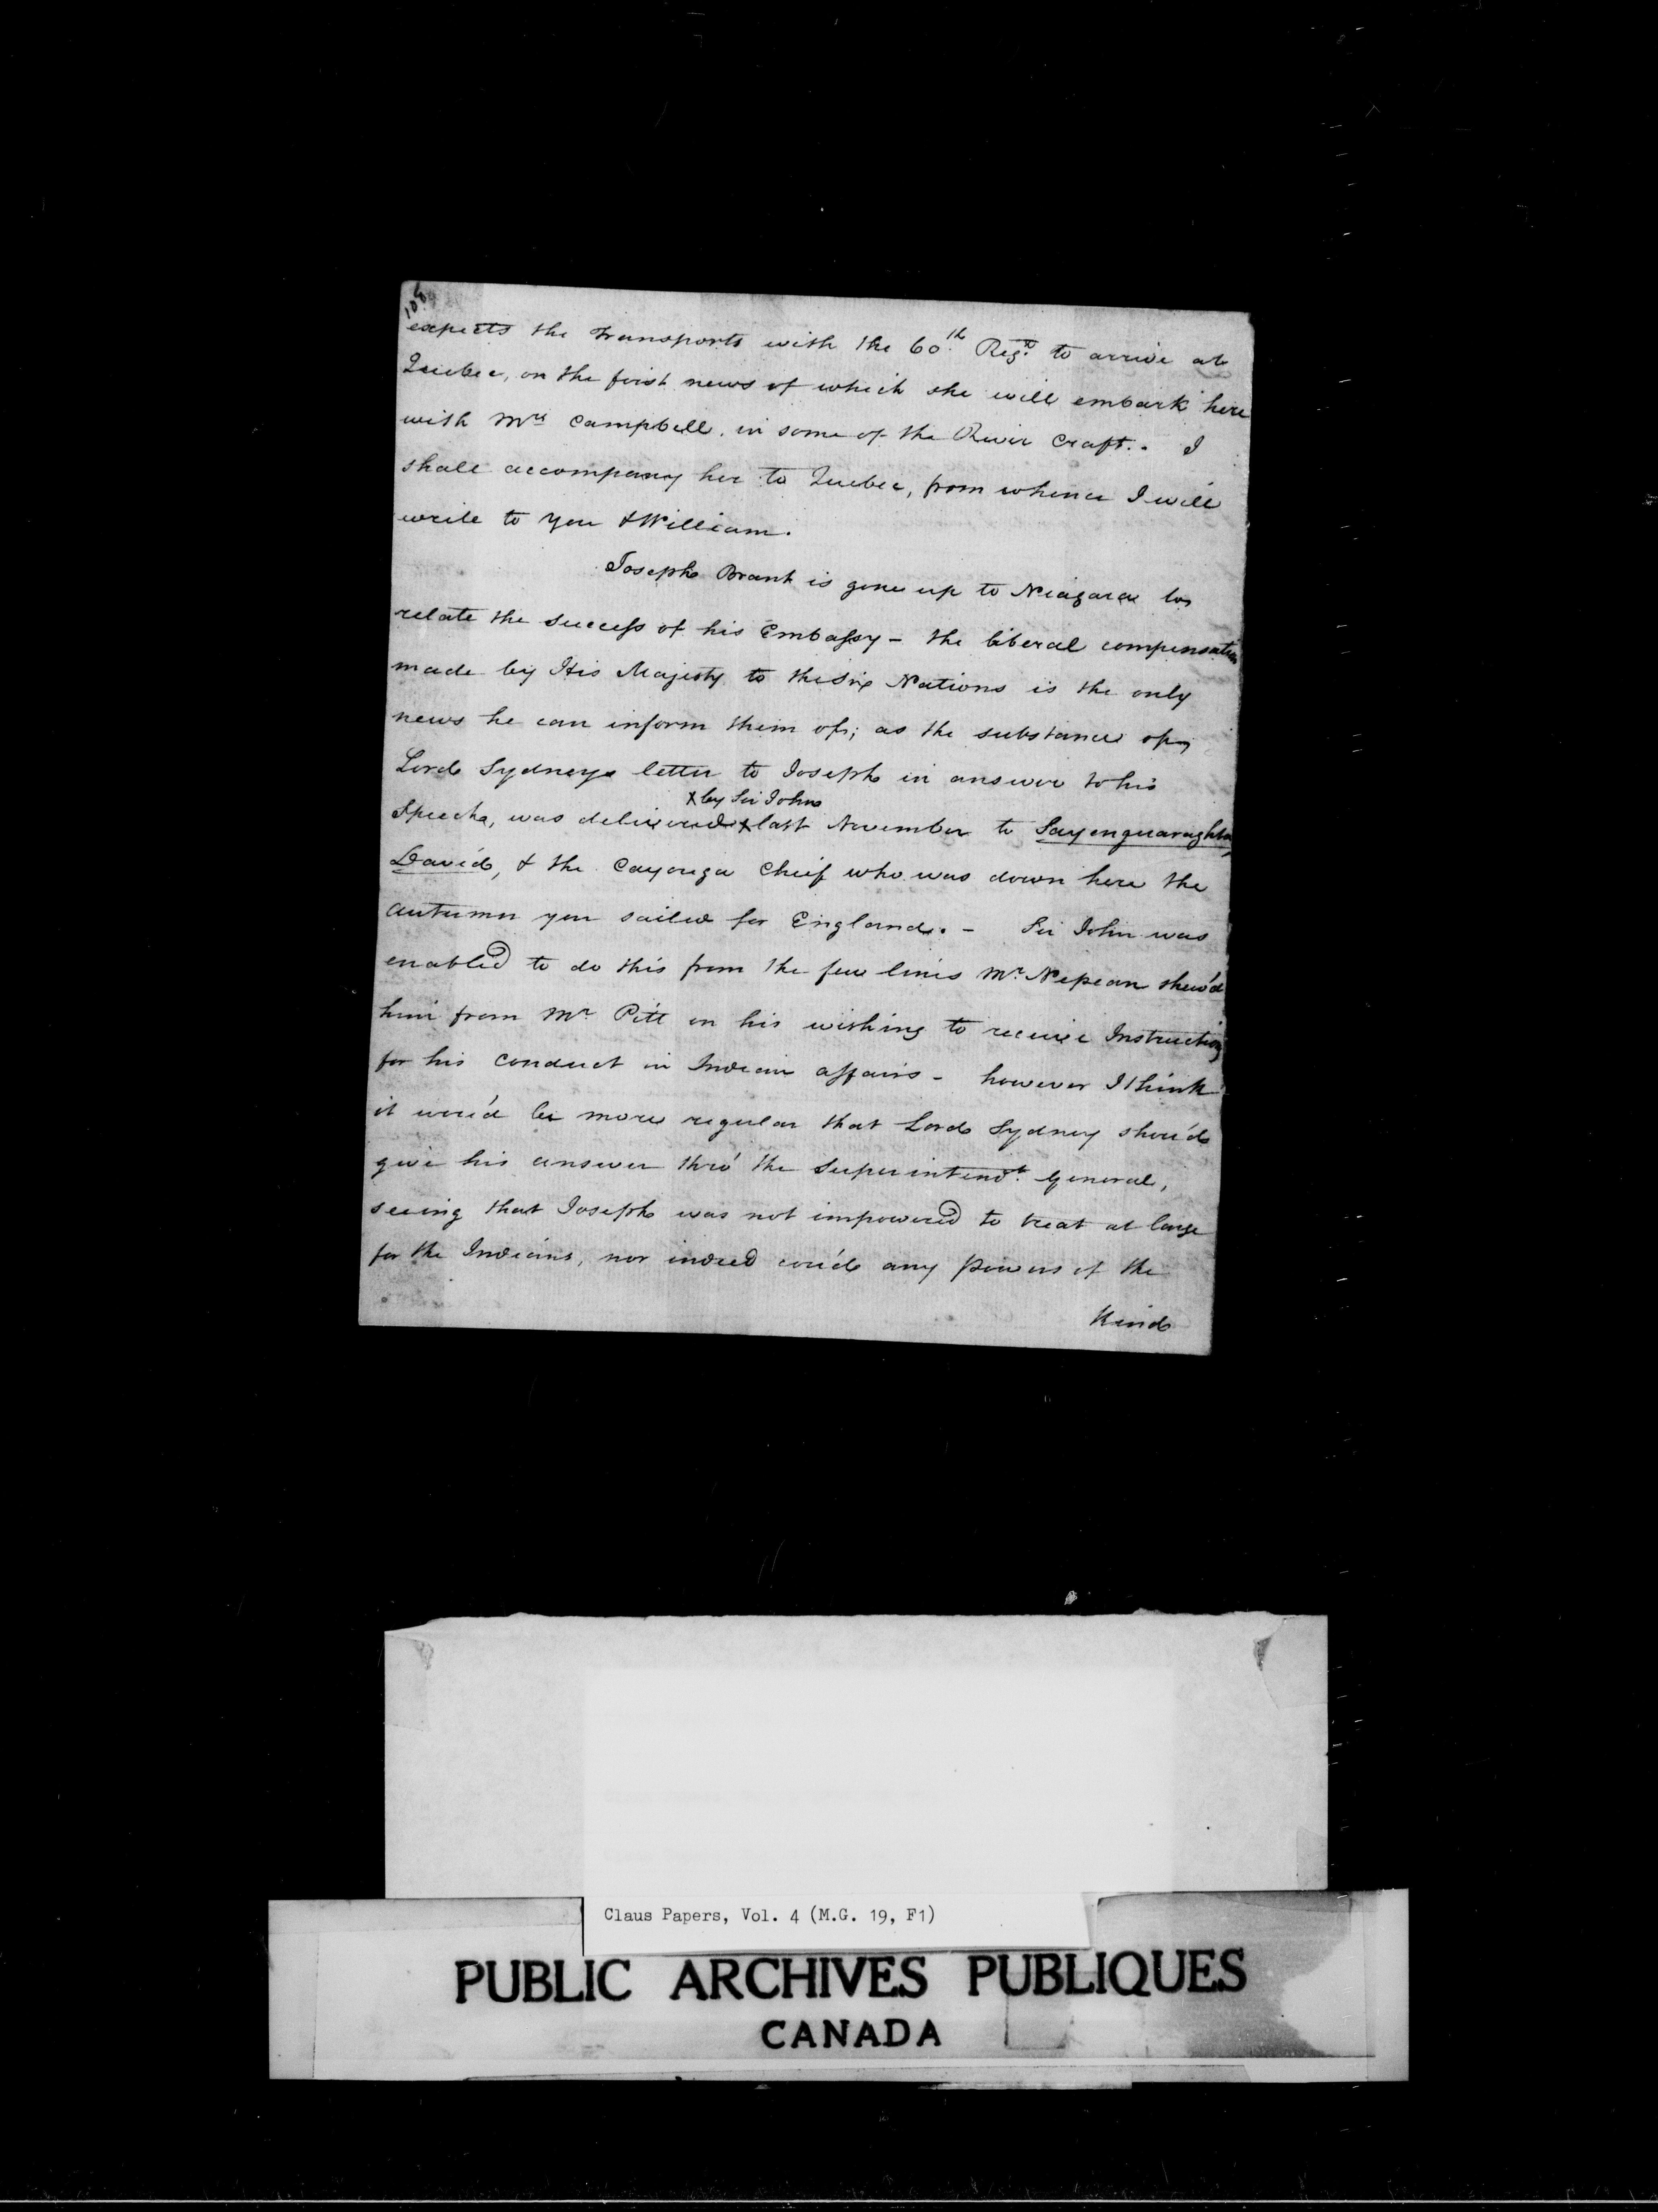 108
expects the Transports with the 60th Regt to arrive at
Quebec, on the first news of which she will embark here
with Mrs Campbell, in some of the River Craft. . I
shall accompany her to Quebec, from whence I will
write to you & William.
Joseph Brant is gone up to Niagara to
relate the success of his Embassy - the liberal compensation
made by His Majesty to the Six Nations is the only
news he can inform them of; as the substance of
Lord Sydneys letter to Joseph in answer to his
x by Sir John
Speech, was delivered x last November to Sayenguaraghta,
David, & the Cayouga Chief who was down here the
autumn you sailed for England. - Sir John was
enabled to do this from the few lines Mr Nepean shew'd
him from Mr Pitt on his wishing to receive Instructions
for his conduct in Indian affairs - however I think
it wou'd be more regular that Lord Sydney shou'd
give his answer thro' the Superintendt General,
seeing that Joseph was not impowered to treat at large
for the Indians, nor indeed cou'd any Powers of the
Kind
Claus Papers, Vol. 4 (M.G. 19, F1)
PUBLIC ARCHIVES PUBLIQUES
CANADA